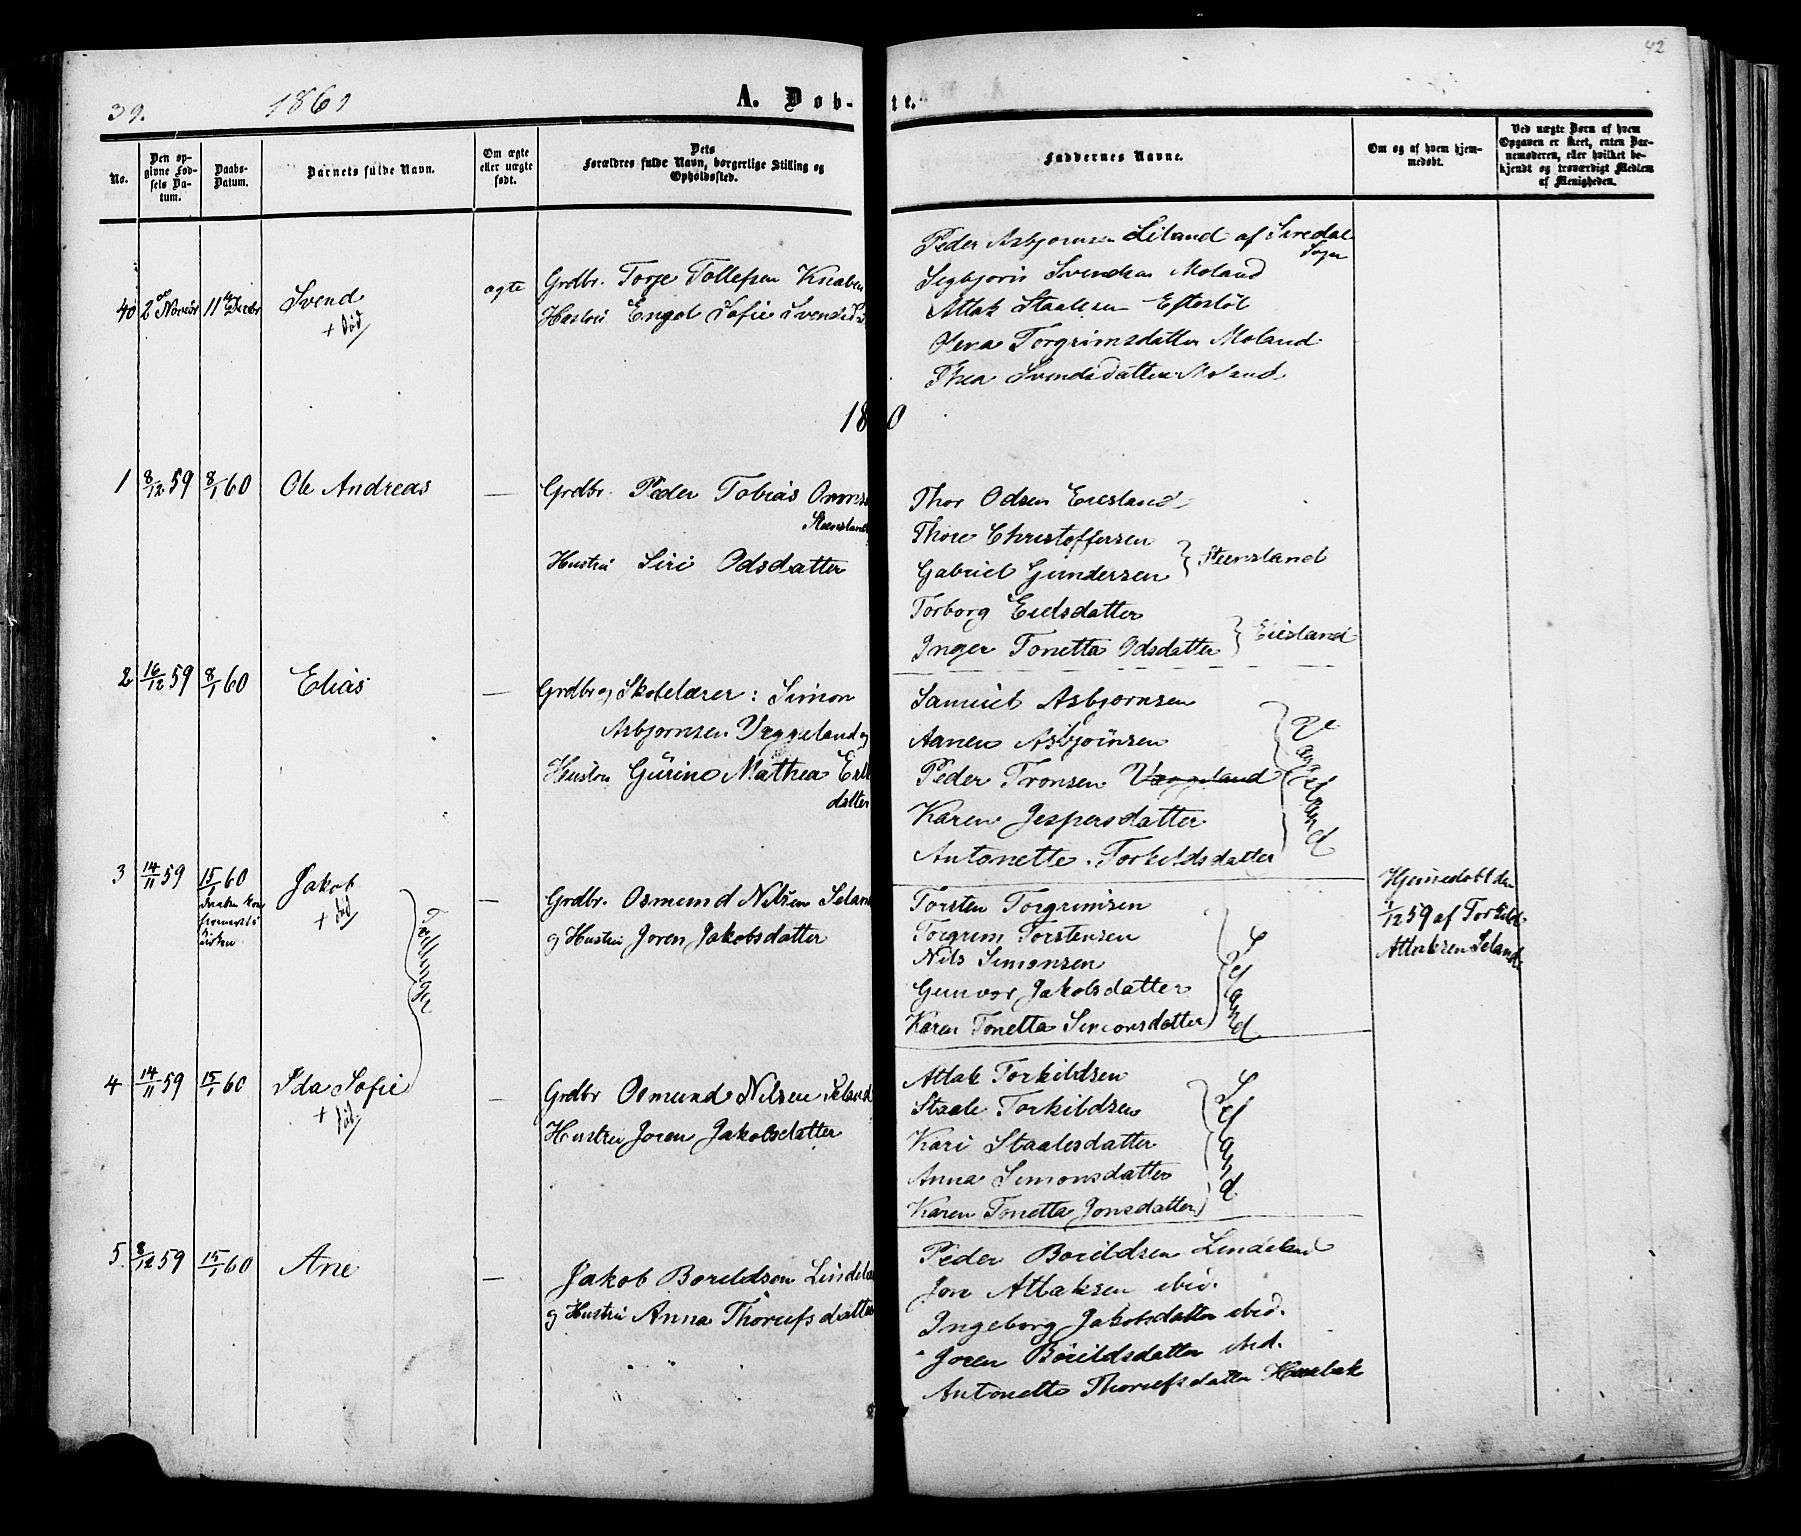 39.
1860
A. Døb-
te.
42
No.
Den op-
givne Fød-
sels Da-
tum.
Daabs-
Datum.
Barnets fulde Navn.
Om ægte
eller uægte
født.
Dets
Forældres fulde Navn, borgerlige Stilling og
Opholdssted.
Faddernes Navne.
Om og af hvem hjem-
medøbt.
Ved uægte Børn af hvem
Opgaven er skeet, enten Bar-
nemoderen, eller hvilket be-
kjendt og troværdigt Medlem
af Menigheden.
40 2 Novbr 11 Decbr Svend
+ død
ægte
Grdbr. Torje Tollefsen Knaben
Hustru Engel Sofie Svendsd
Peder Asbjørnsen Liland af Siredal
Sogn
Sigbjørn Svendsen Moland
Atlak Staalesen Eftestøl
Torgrimsdatter Moland
Thea Svendsdatter Moland
18 0
1 8/12 59 8/1 60 Ole Andreas —
Grdbr. Peder Tobias Omms
Steensland
Hustru Siri Odsdatter
Thor Odsen Eiesland
Thore Christoffersen
Gabriel Gundersen } Steensland
Torborg Eielsdatter
Inger Tonetta Odsdatter } Eiesland
2 16/12 59 8/1 60 Elias —
Grdbr og Skolelærer: Simon
Asbjørnsen Væggeland og
Hustru Gurine Mathea
datter
Samuel Asbjørnsen
Aanen Asbjørnsen
Peder Tronsen Væggeland
Karen Jespersdatter
Antonette Torkildsdatter
Væggeland
3 14/11 59 15/1 60 Jakob
+ død
Tvillinger
—
Grdbr. Osmund Nilsen Seland
og Hustru Joren Jakobsdatter
Torsten Torgrimsen
Torgrim Torstensen
Nils Simonsen
Gunvor Jakobsdatter
Karen Tonetta Simonsdatter
Seland
Hjemmedøbt den
1/12 59 af Torkild
Atlaksen Seland
4 14/11 59 15/1 60 Ida Sofie
+ død
—
Grdbr Osmund Nilsen Seland
Hustru Joren Jakobsdatter
Atlak Torkildsen
Staale Torkildsen
Kari Staalesdatter
Anna Simonsdatter
Karen Tonetta Jonsdatter
Seland
5. 8/12 59 15/1 60 Ane —
Jakob Boreldsen Lindela
og Hustru Anna Thorufsdatter
Peder Boreldsen Lindeland
Jon Atlaksen ibid.
Ingeborg Jakobsdatter ibid.
Joren Boreldsdatter ibid.
Antonette Thorufsdatter